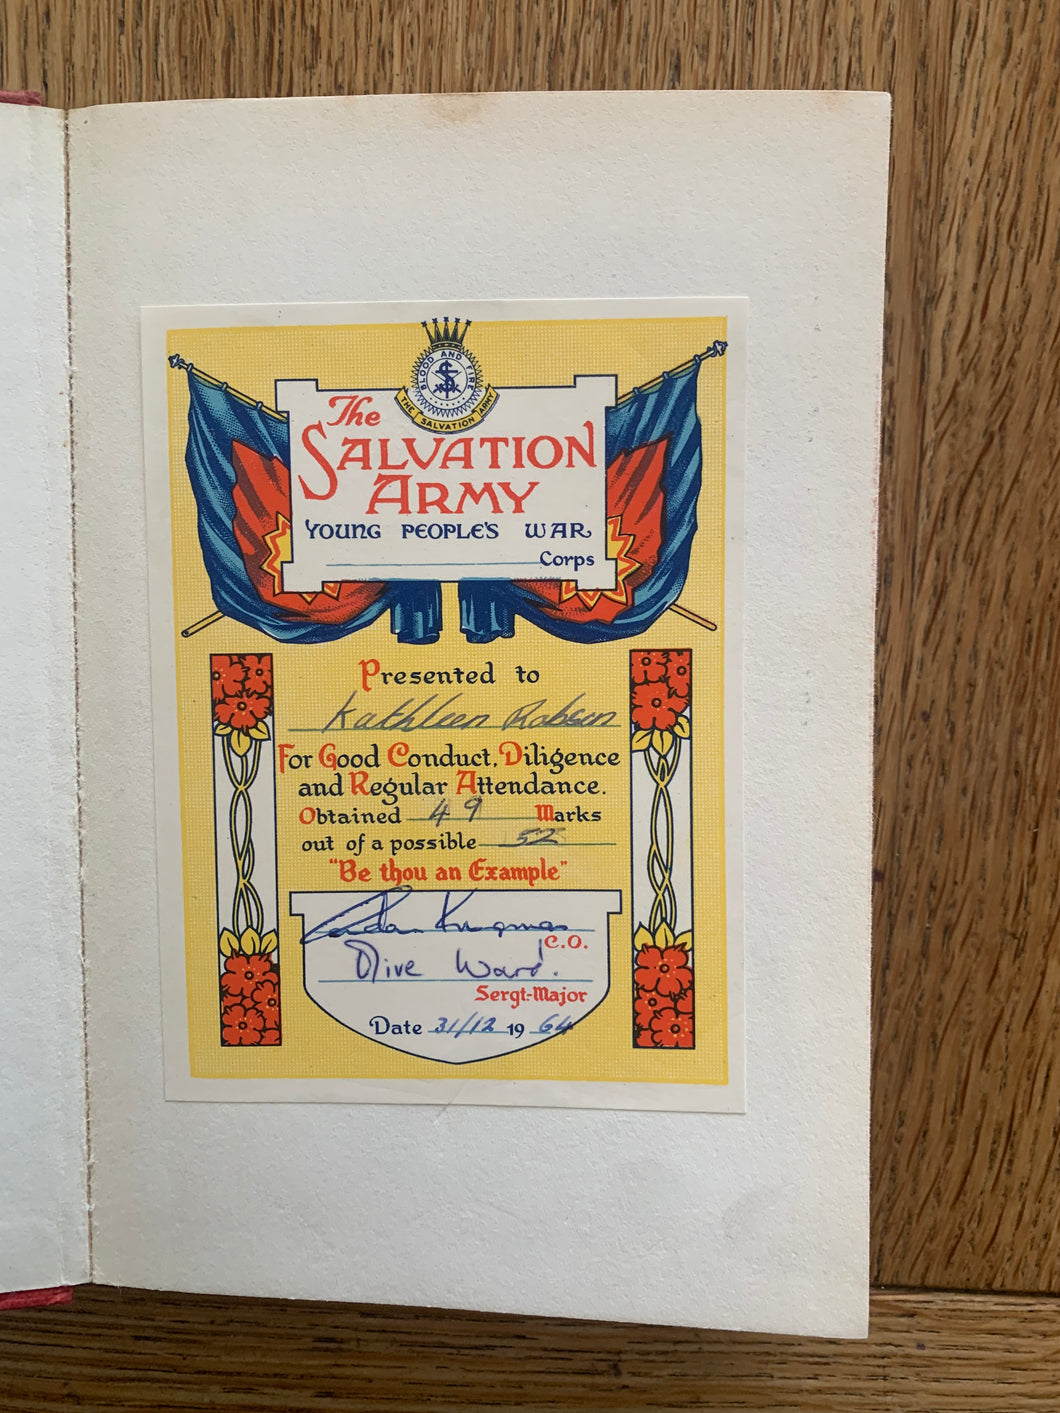 BLOOD AND FIRE
S
THE SALVATION ARMY
The
SALVATION
ARMY
YOUNG PEOPLE'S WAR
Corps
Presented to
Kathleen Robson
For Good Conduct, Diligence
and Regular Attendance.
Obtained 49 Marks
out of a possible 52
"Be thou an Example"
C.O.
Olive Ward.
Sergt.-Major
Date 31/12 1964